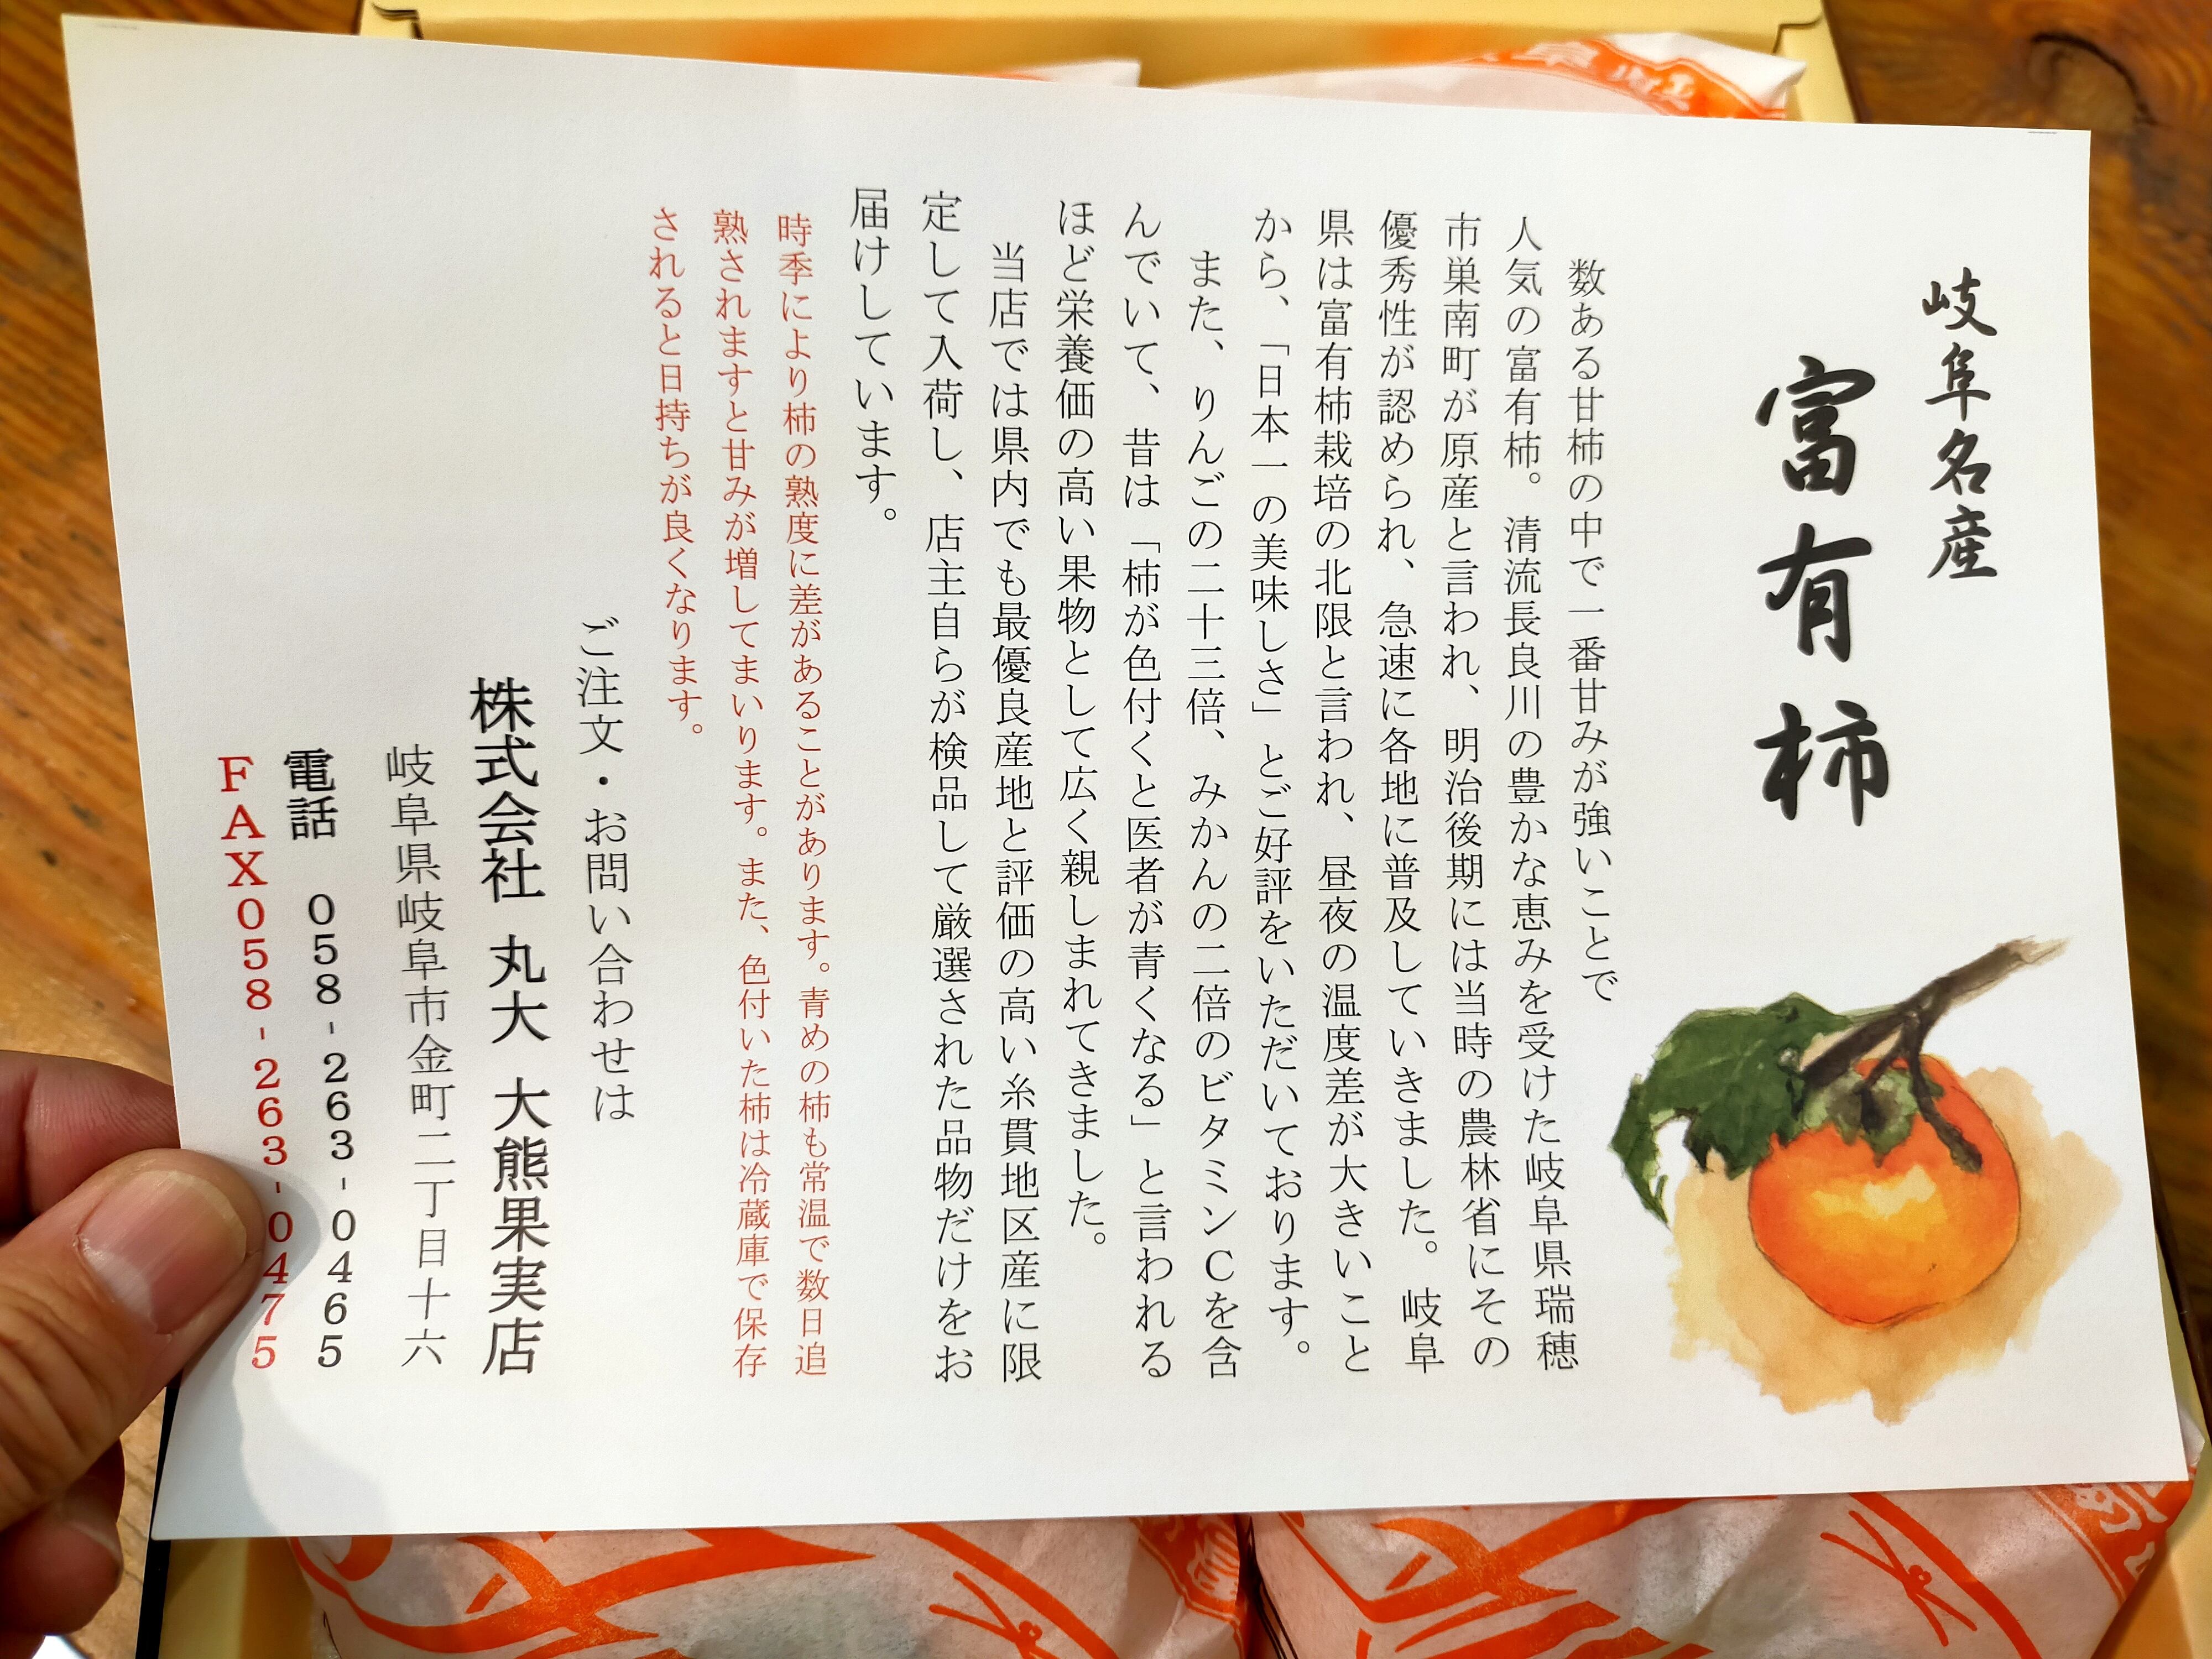 岐阜名産
富有柿
数ある甘柿の中で一番甘みが強いことで
人気の富有柿。清流長良川の豊かな恵みを受けた岐阜県瑞穂
市巣南町が原産と言われ、明治後期には当時の農林省にその
優秀性が認められ、急速に各地に普及していきました。岐阜
県は富有柿栽培の北限と言われ、昼夜の温度差が大きいこと
から、「日本一の美味しさ」とご好評をいただいております。
また、りんごの二十三倍、みかんの二倍のビタミンCを含
んでいて、昔は「柿が色付くと医者が青くなる」と言われる
ほど栄養価の高い果物として広く親しまれてきました。
当店では県内でも最優良産地と評価の高い糸貫地区産に限
定して入荷し、店主自らが検品して厳選された品物だけをお
届けしています。
時季により柿の熟度に差があることがあります。青めの柿も常温で数日追
熟されますと甘みが増してまいります。また、色付いた柿は冷蔵庫で保存
されると日持ちが良くなります。
ご注文・お問い合わせは
株式会社 丸大 大熊果実店
岐阜県岐阜市金町二丁目十六
電話 058-263-0465
FAX058-263-0475